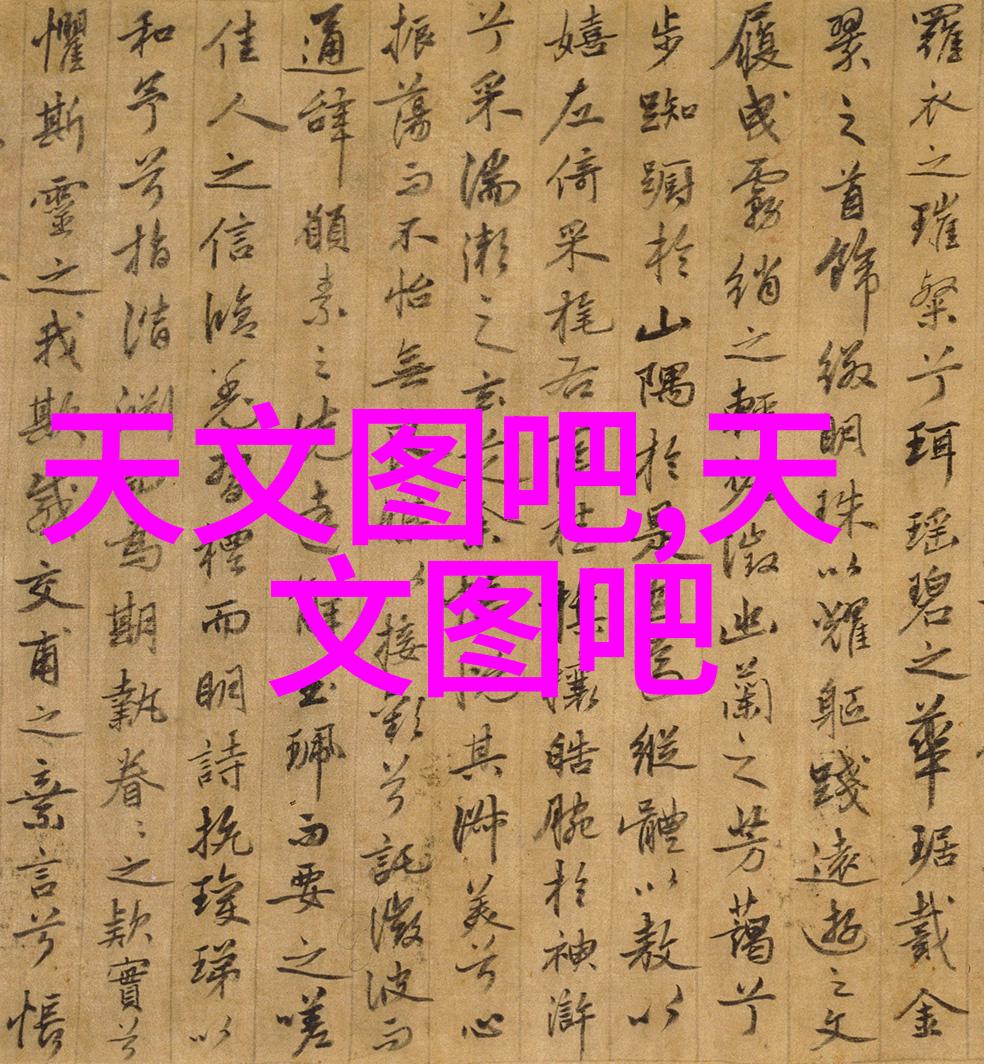 羅衣之璀粲兮珥瑤碧之華琚戴金
翠之首飾綴明珠以耀軀踐遠遊之文
履曳霧綃之輕微幽蘭之芳藹兮
步踟蹰於山隅於是縱體以敖以
嬉左倚采旄右桂攘皓腕於神滸
兮采湍瀨之玄芝余其淑美兮心
振蕩而不怡無以接歡兮託微波而
通辭願素之先達解玉珮而要之嗟
佳人之信脩羌習禮而明詩抗瓊珶以
和予兮指潛淵而為期執眷〻之款實兮
懼斯靈之我欺感交甫之棄言兮悵
天文图吧,天
文图吧